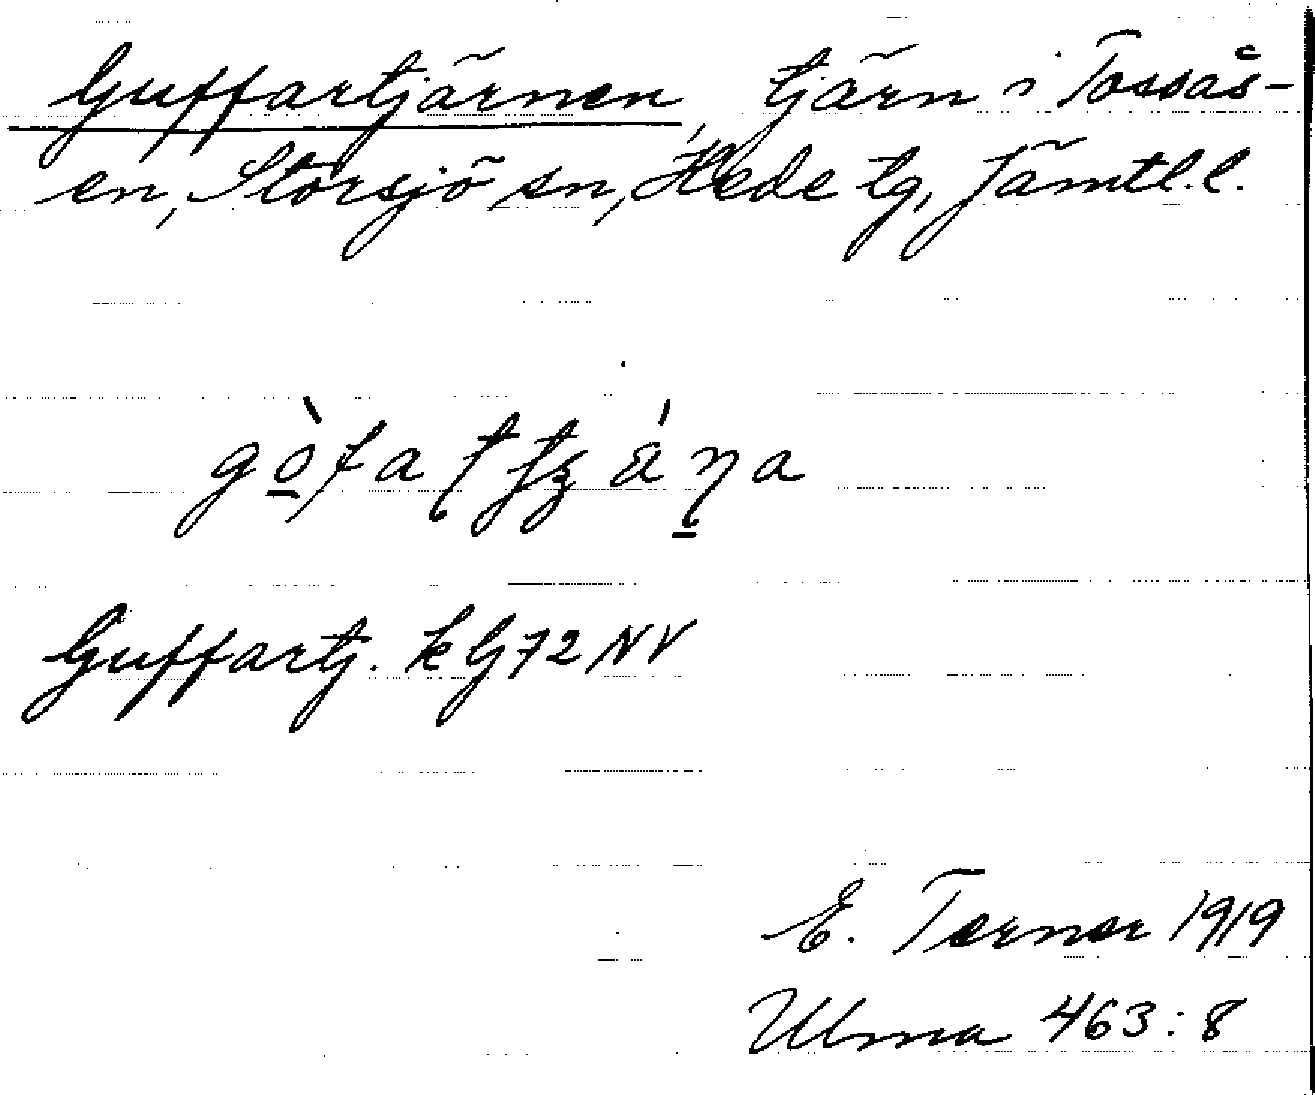 Guffartjärnen, tjärn i Tossås-
en, Storsjö sn, Hede tg, Jämtl.l.
Guffartj. k G 72 NV
E. Terner 1919
Ulma 463:8